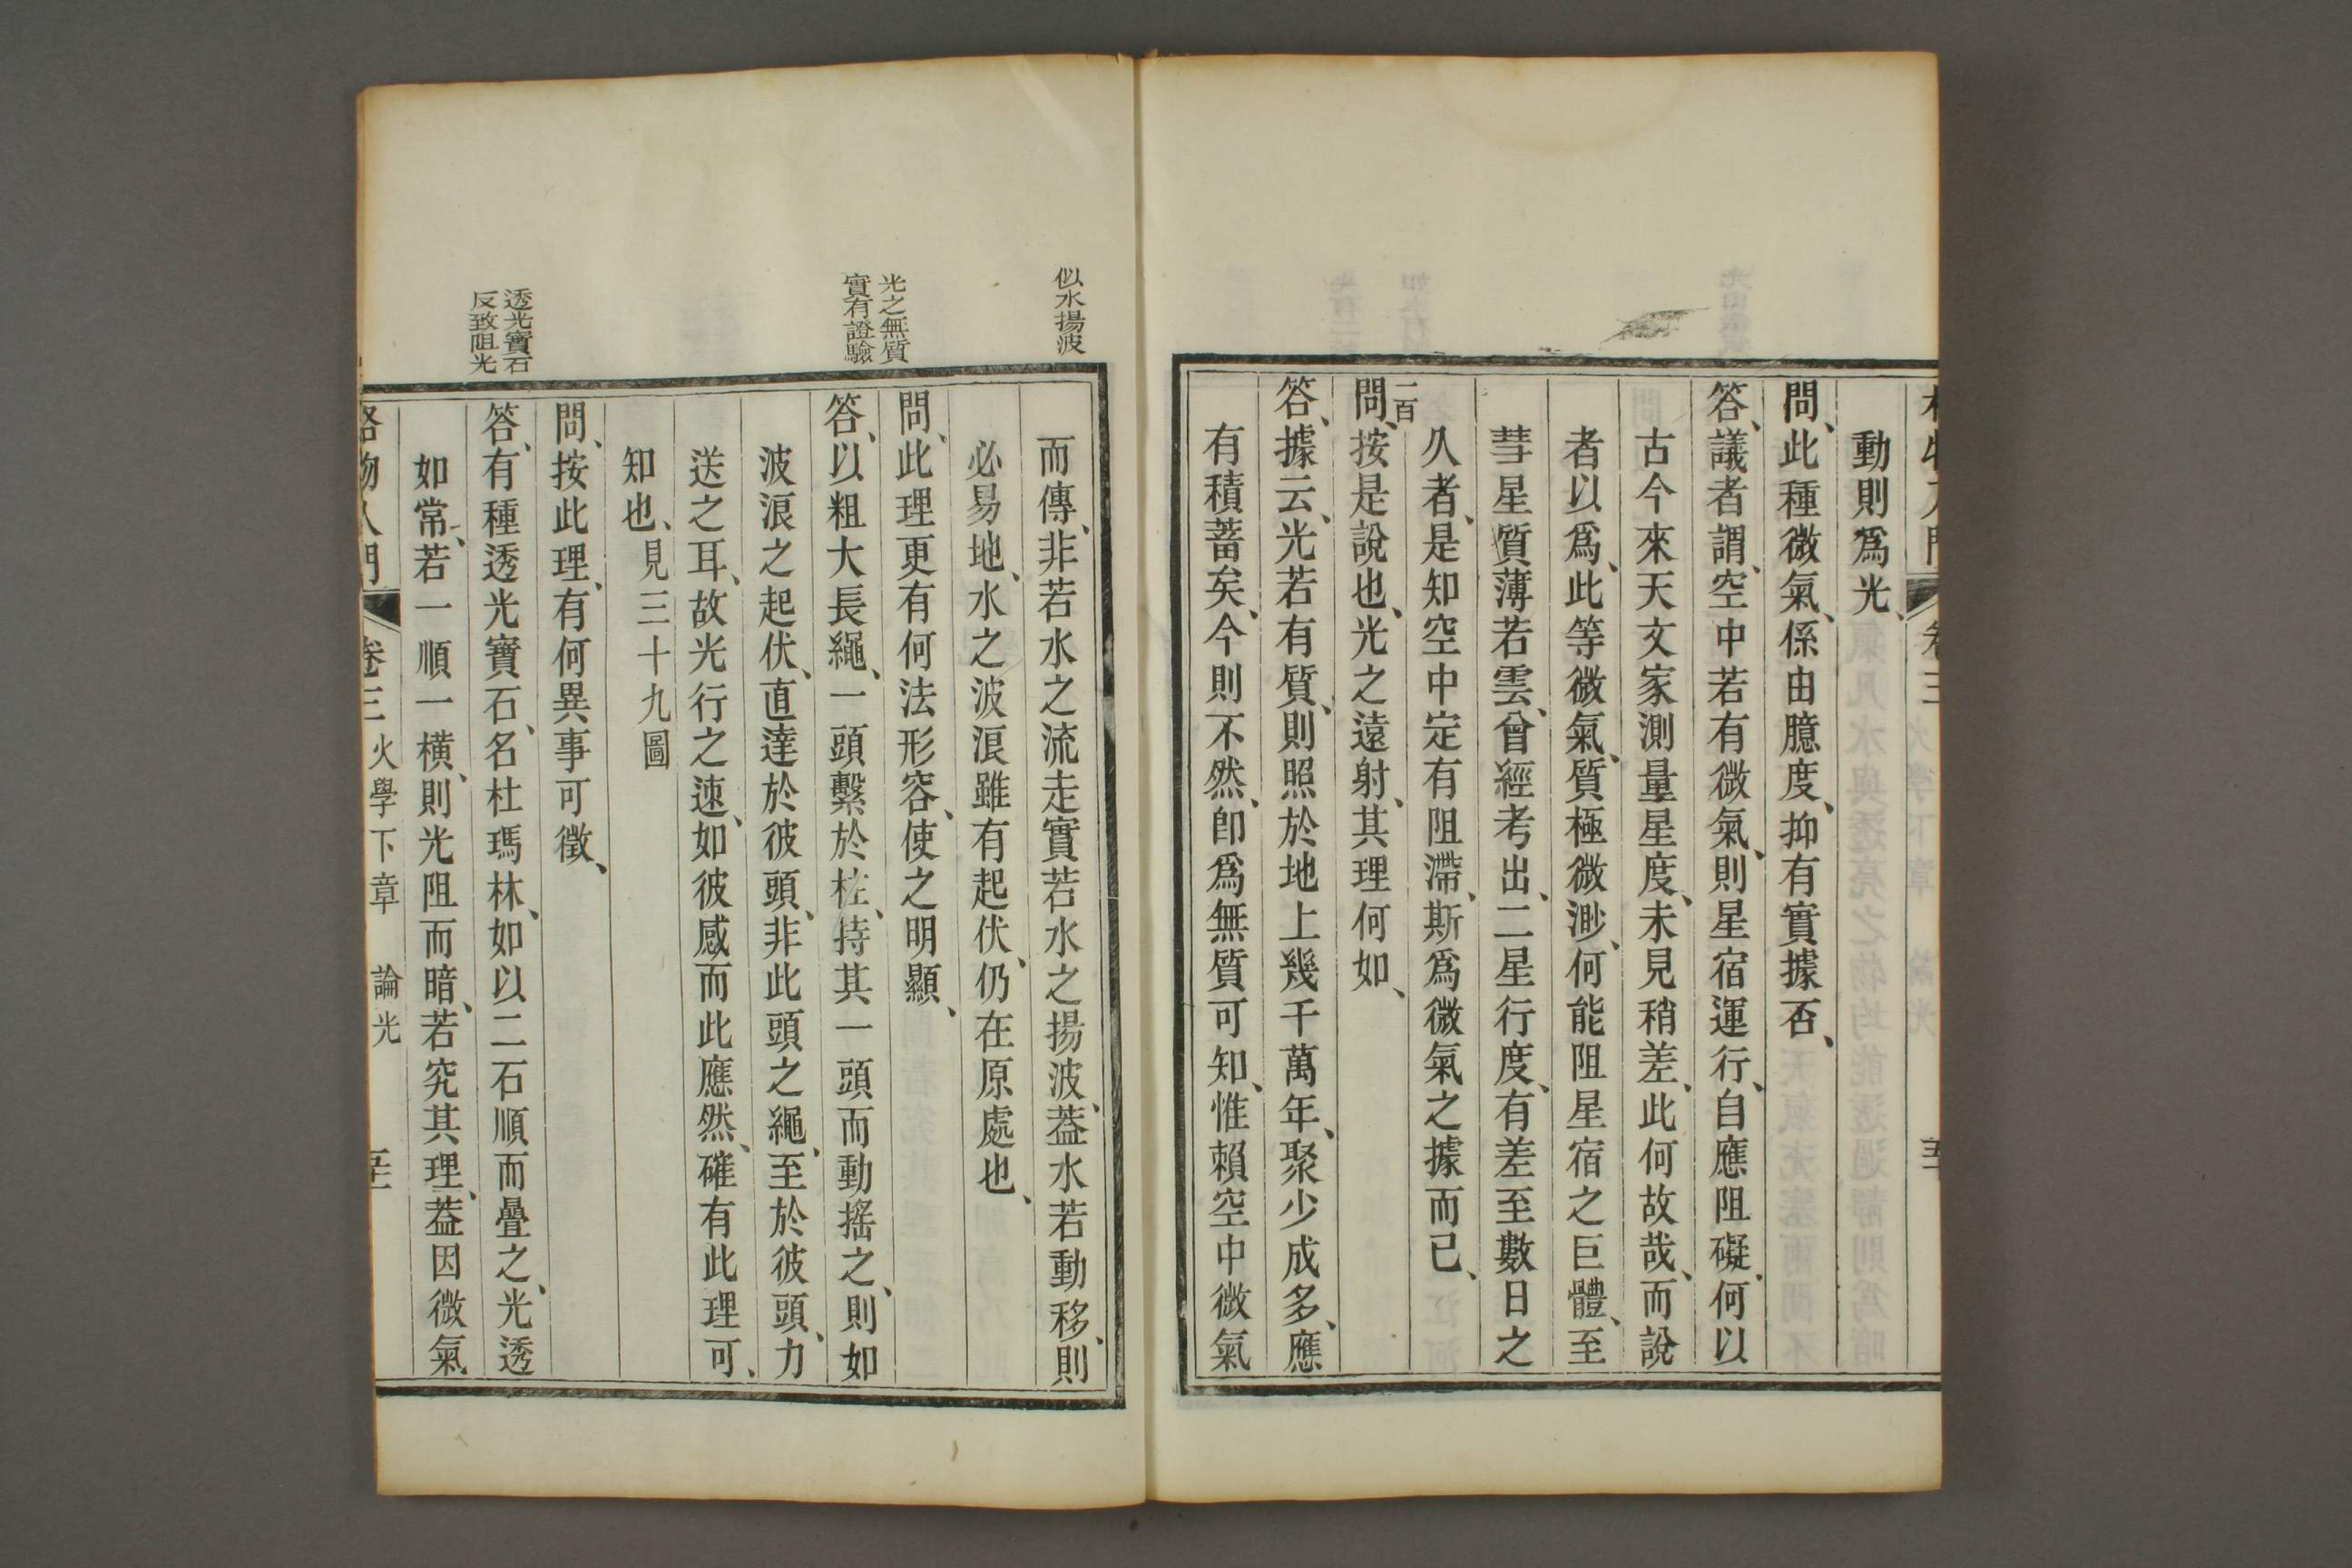 動則爲光、
問、此種微氣、係由臆度、抑有實據否、
答、議者謂、空中若有微氣、則星宿運行、自應阻礙、何以
古今來天文家測量星度、未見稍差、此何故哉、而說
者以爲、此等微氣、質極微渺、何能阻星宿之巨體、至
彗星質薄若雲、曾經考出、二星行度、有差至數日之
久者、是知空中定有阻滯、斯爲微氣之據而已、
一百
問、按是說也、光之遠射、其理何如、
答、據云、光若有質、則照於地上幾千萬年、聚少成多、應
有積蓄矣、今則不然、卽爲無質可知、惟賴空中微氣
似水揚波
而傳、非若水之流走實若水之揚波、葢水若動移、則
必易地、水之波浪雖有起伏、仍在原處也、
問、此理更有何法形容、使之明顯、
光之無質
實有證驗
答、以粗大長繩、一頭繫於柱、持其一頭而動搖之、則如
波浪之起伏、直達於彼頭、非此頭之繩、至於彼頭、力
送之耳、故光行之速、如彼感而此應然、確有此理可、
知也、見三十九圖
問、按此理、有何異事可徵、
透光寶石
反致阻光
答、有種透光寶石、名杜瑪林、如以二石順而疊之、光透
如常、若一順一橫、則光阻而暗、若究其理、葢因微氣
格物入門 卷三 火學下章 論光